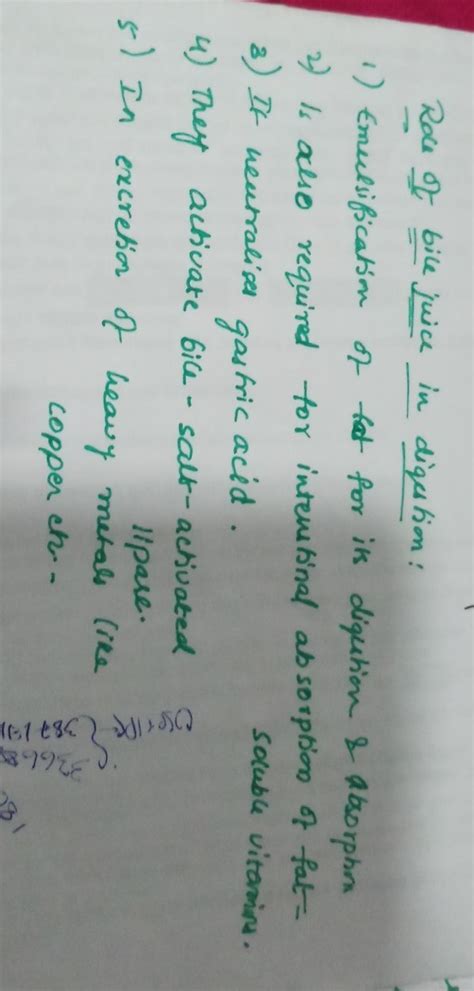 Role of bile juice in digestion:
1) Emulsification of fat for its digestion & absorption
2) Is also required for intestinal absorption of fat-
soluble vitamins.
3) It neutralises gastric acid.
4) They activate bile-salt-activated
lipase.
5) In excretion of heavy metals like
copper etc.-